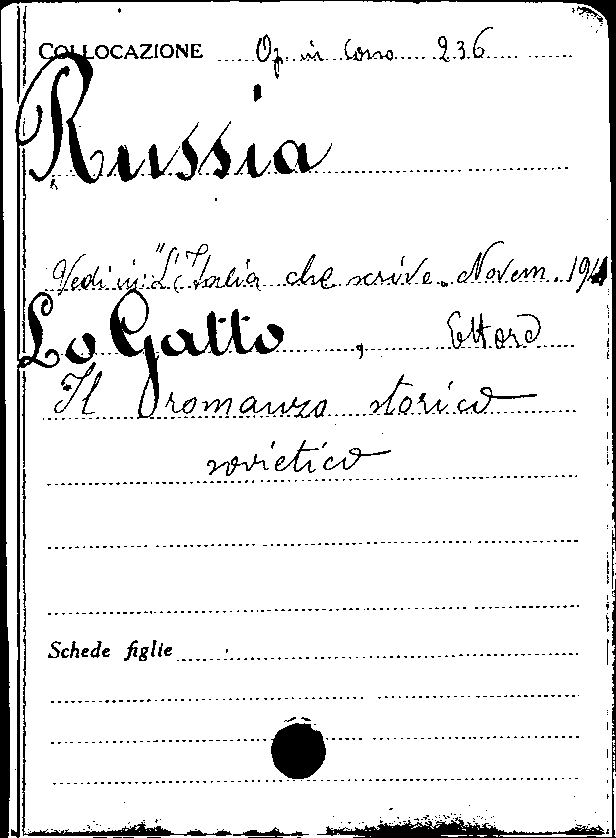 COLLOCAZIONE Op. in Corso 236
Russia
Vedi in "L'Italia che scrive. Novem.
Lo Gatto, Ettore
Il romanzo storico
sovietico
Schede figlie